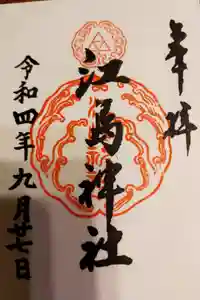 奉拝
江島神社
令和四年九月廿七日